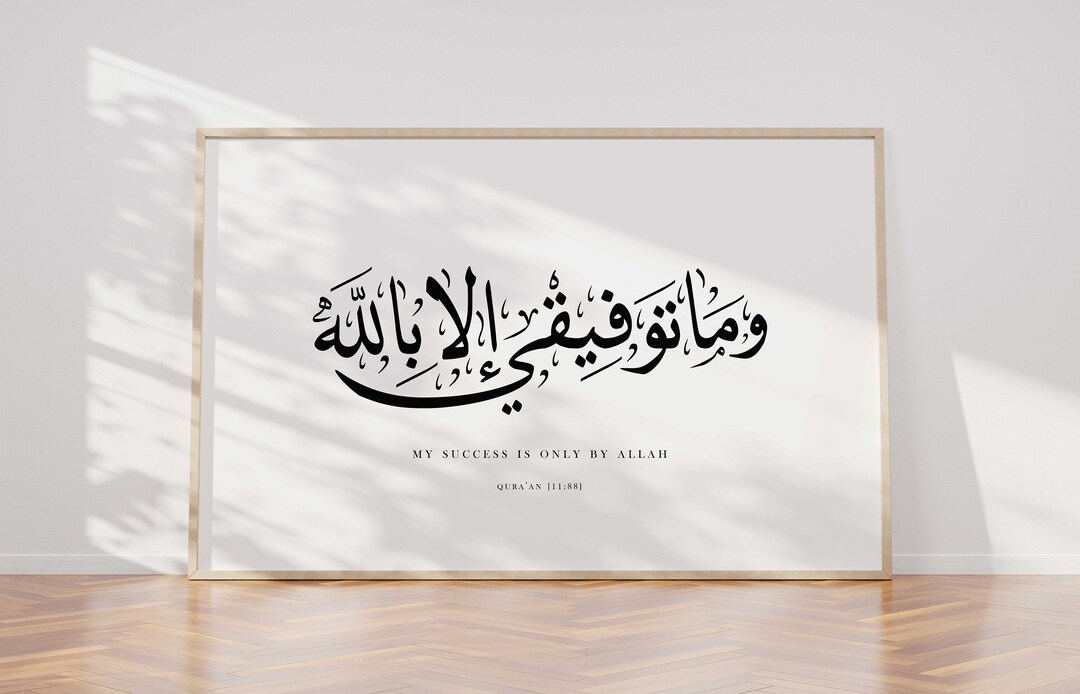 وما توفيقي إلا بالله
MY SUCCESS IS ONLY BY ALLAH
QURA'AN [11:88]